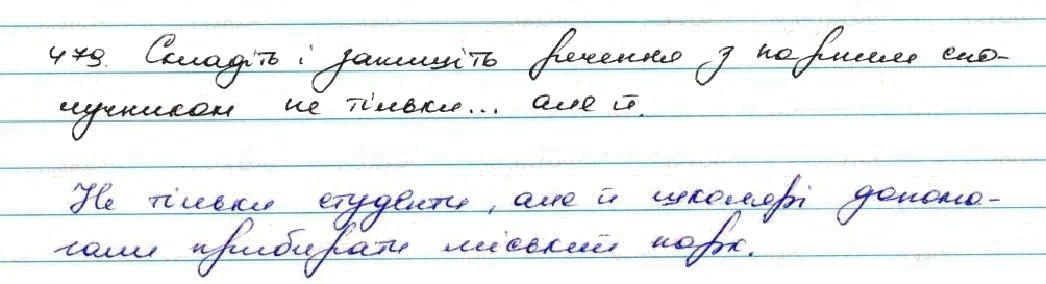 479. Складіть і запишіть речення з парним спо-
лучником не тільки... але й.
Не тільки студенти, але й школярі допома-
гали прибирати міський парк.